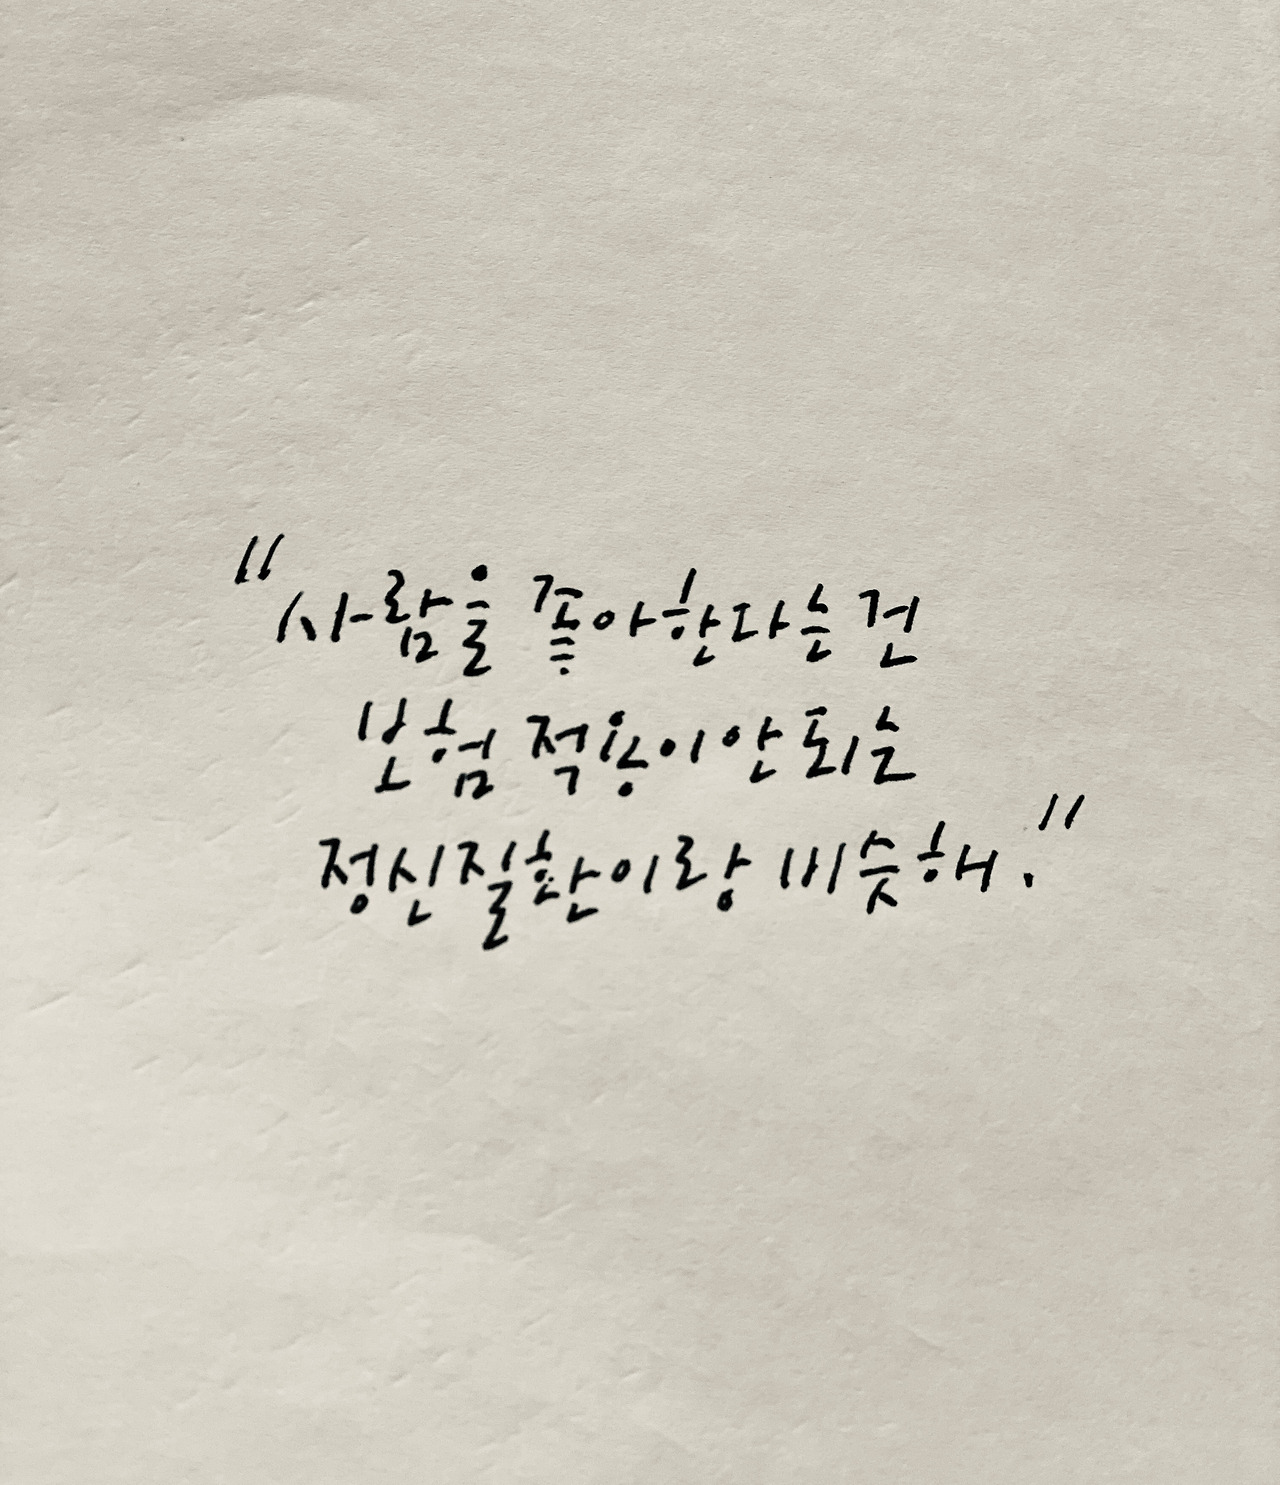 "사람을 좋아한다는 건
보험 적용이 안 되는
정신질환이랑 비슷해."